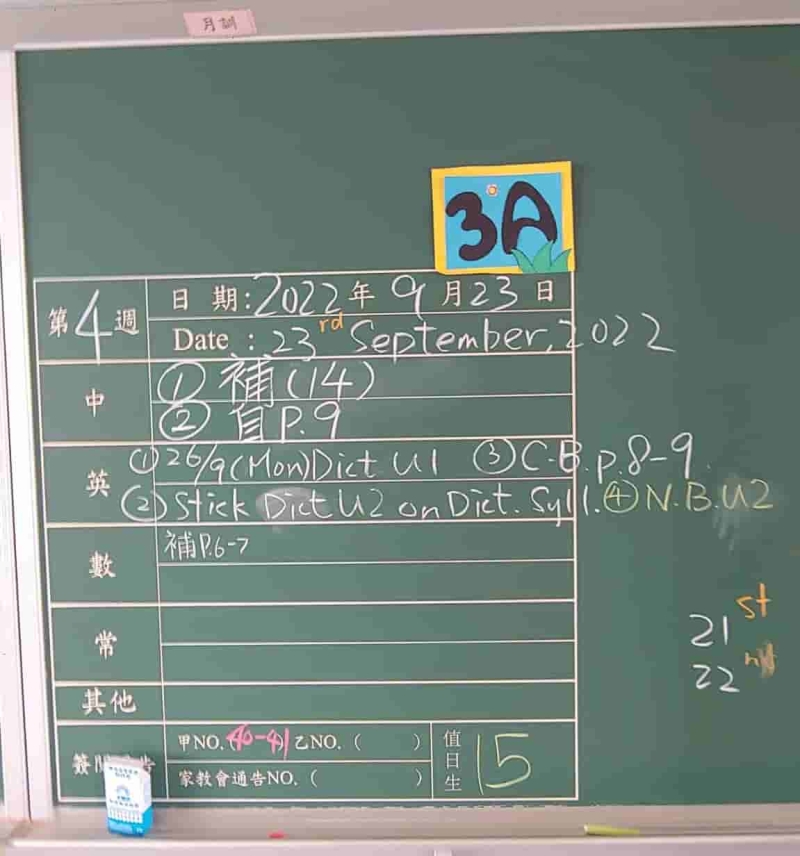 月訓
3A
第4週
日 期:2022年9月23日
Date : 23rd September, 2022
中
① 補(14)
② 自P.9
英
① 26/9(Mon)Dict U1 ③ C.B.p.8-9
② Stick Dict U2 on Dict. Syll. ④ N.B.U2
數
補P.6-7
常
其他
甲NO.(40-41 乙NO.( )
家教會通告NO.( )
值日生 15
21st
22nd